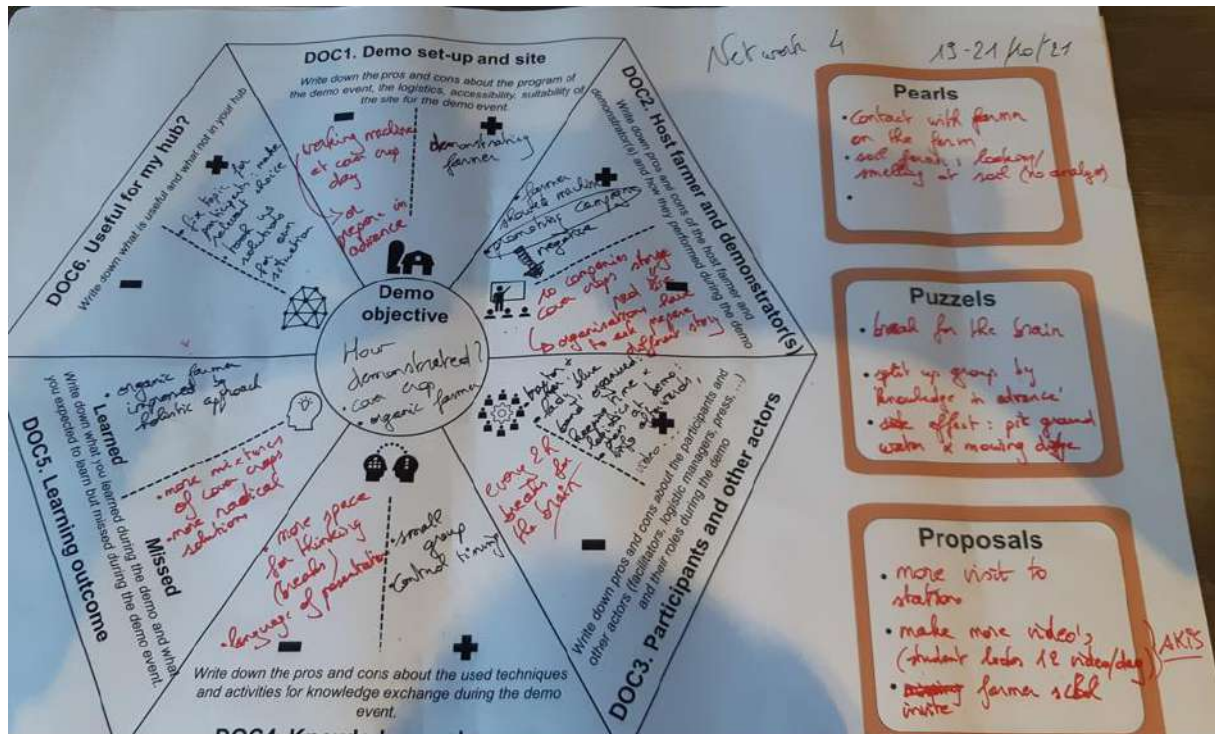 Network 4
19-21/10/21
DOC1. Demo set-up and site
Write down the pros and cons about the program of
the demo event, the logistics, accessibility, suitability of
the site for the demo event.
working machine
at cover crop
day
or
prepare in
advance
demonstrating
farmer
DOC2. Host farmer and demonstrator(s)
Write down pros and cons of the host farmer and
demonstrator(s) and how they performed during the demo
• farmer
showed machine
• promoting company
negative
to companies
cover crops
organisations
to ask prepare
different story
DOC3. Participants and other actors
Write down pros and cons about the participants and
other actors (facilitators, logistic managers, press, ...)
and their roles during the demo
every 2h
breaks for
the brain
Write down the pros and cons about the used techniques
and activities for knowledge exchange during the demo
event.
• more space
for thinking
(breaks)
• language of presentation
• small
group
• control timing
DOC5. Learning outcome
Write down what you learned during the demo and what
you expected to learn but missed during the demo event.
Learned
• organic farmer
improved by
holistic approach
Missed
• more mixtures
of cover crops
• more practical
solutions
DOC6. Useful for my hub?
Write down what is useful and what not in your hub
• fix topic for
participants: make
relevant choice
solutions
for own
situation
Demo
objective
How
demonstrated?
• cover crop
• organic farmer
Pearls
• contact with farmer
on the farm
smelling at soil (no analyzes)
Puzzels
• break for the brain
• split up group by
'knowledge in advance'
• side effect: pit ground
water & mowing
Proposals
• more visit to
stations
• make more video's
(student 12 video/day)
AKIS
• farmer
invite